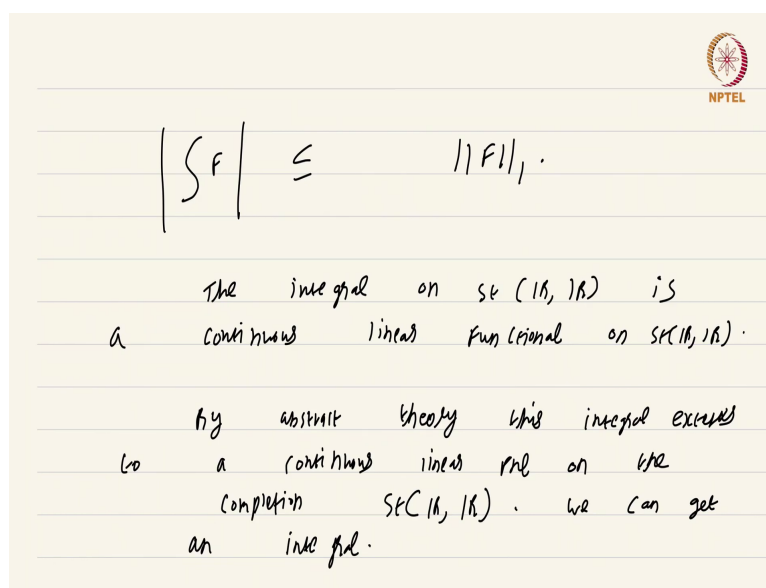 NPTEL
|∫F| ≤ ||F||₁.
The integral on St(ℝ, ℝ) is
a continuous linear functional on St(ℝ, ℝ).
By abstract theory this integral extends
to a continuous linear fnl on the
completion St(ℝ, ℝ). We can get
an integral.